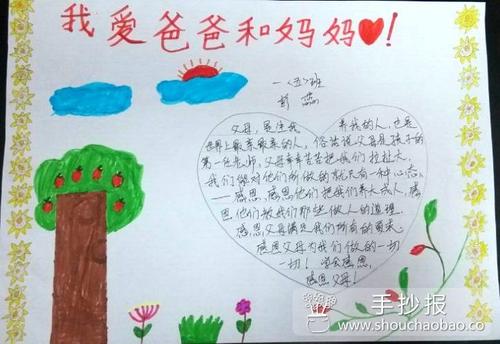 我爱爸爸和妈妈❤!
一〈五〉班
彭蕊
父母,是生我 养我的人,也是
世界上最亲最亲的人,俗话说父母是孩子的
第一任老师,父母辛辛苦苦把我们拉扯大,
我们能对他们所做的就只有一种心态,
——感恩,感恩他们把我们养大成人,感
恩他们教我们那些做人的道理.
感恩父母满足我们所有的要求.
感恩父母为我们做的一切
一切!学会感恩,
感恩父母!
手抄报
www.shouchaobao.co